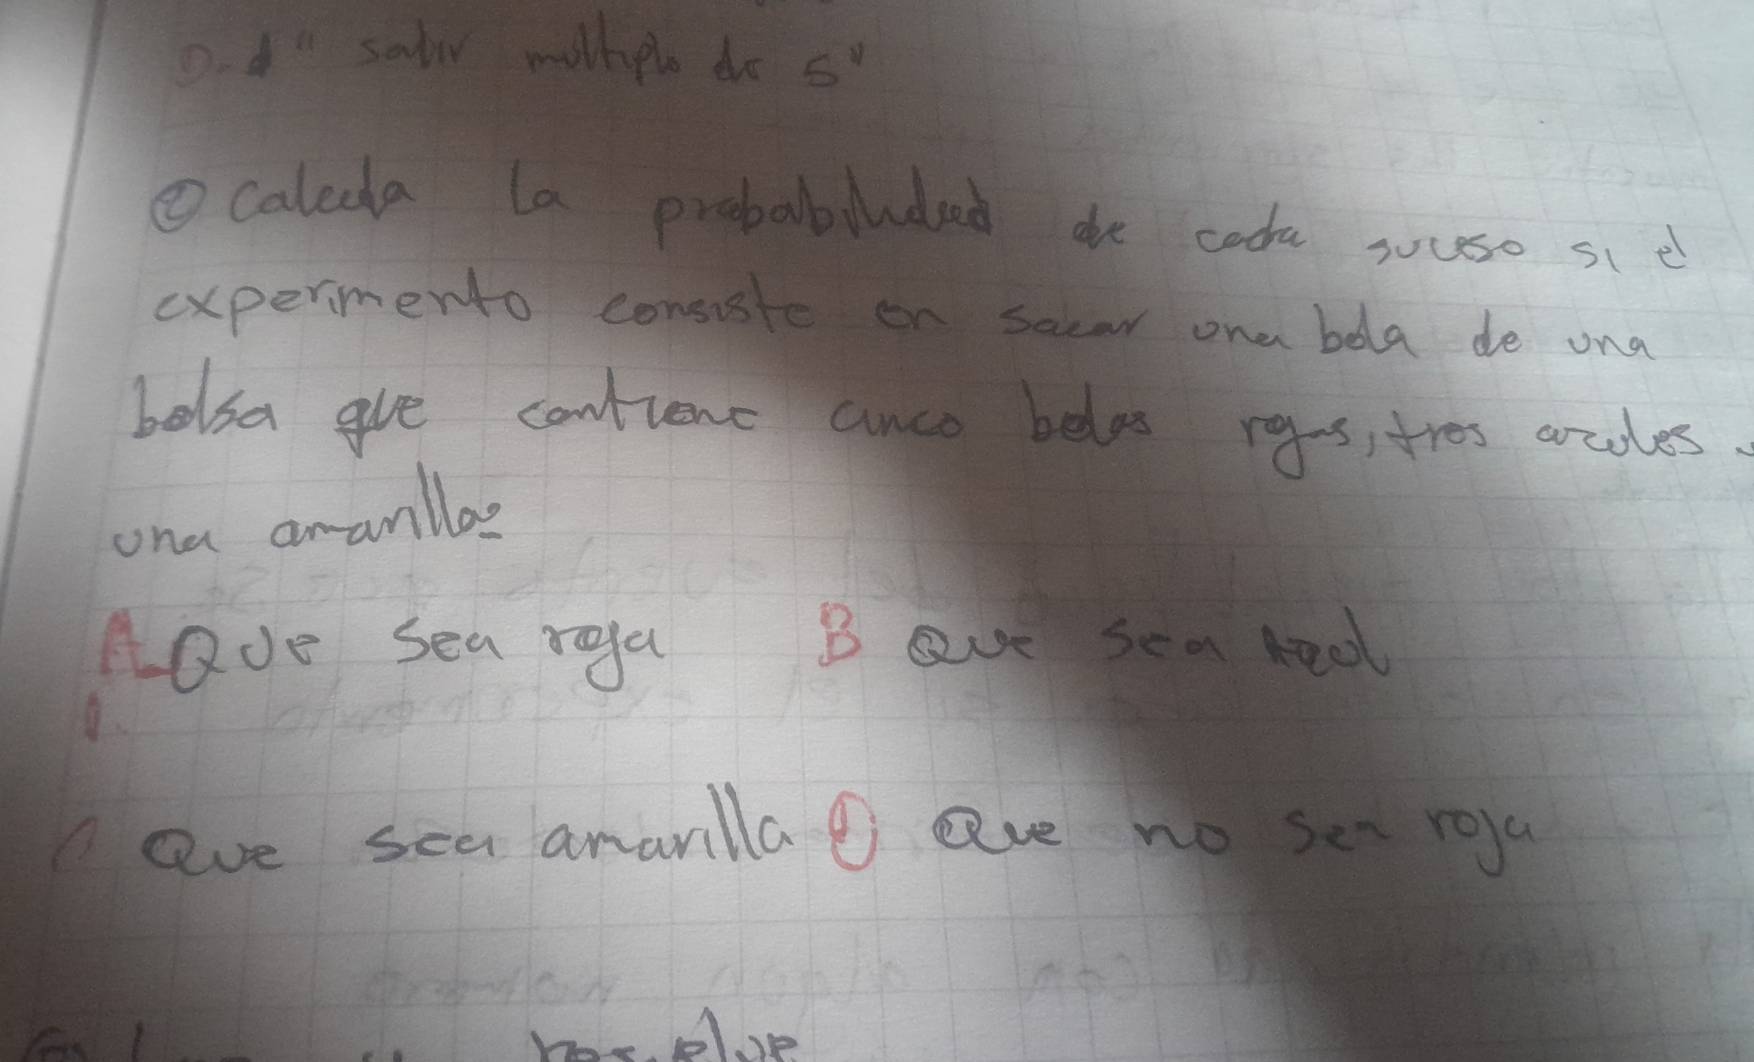 D. "salir multiplo de 5"
② Calcula la probabilidad de cada suceso si el
experimento consiste en sacar una bola de una
bolsa que contiene cinco bolas rojas, tres azules y
una amarilla:
A- Que sea roja B Que sea Azul
C Que sea amarilla D Que no sea roja
resuelve